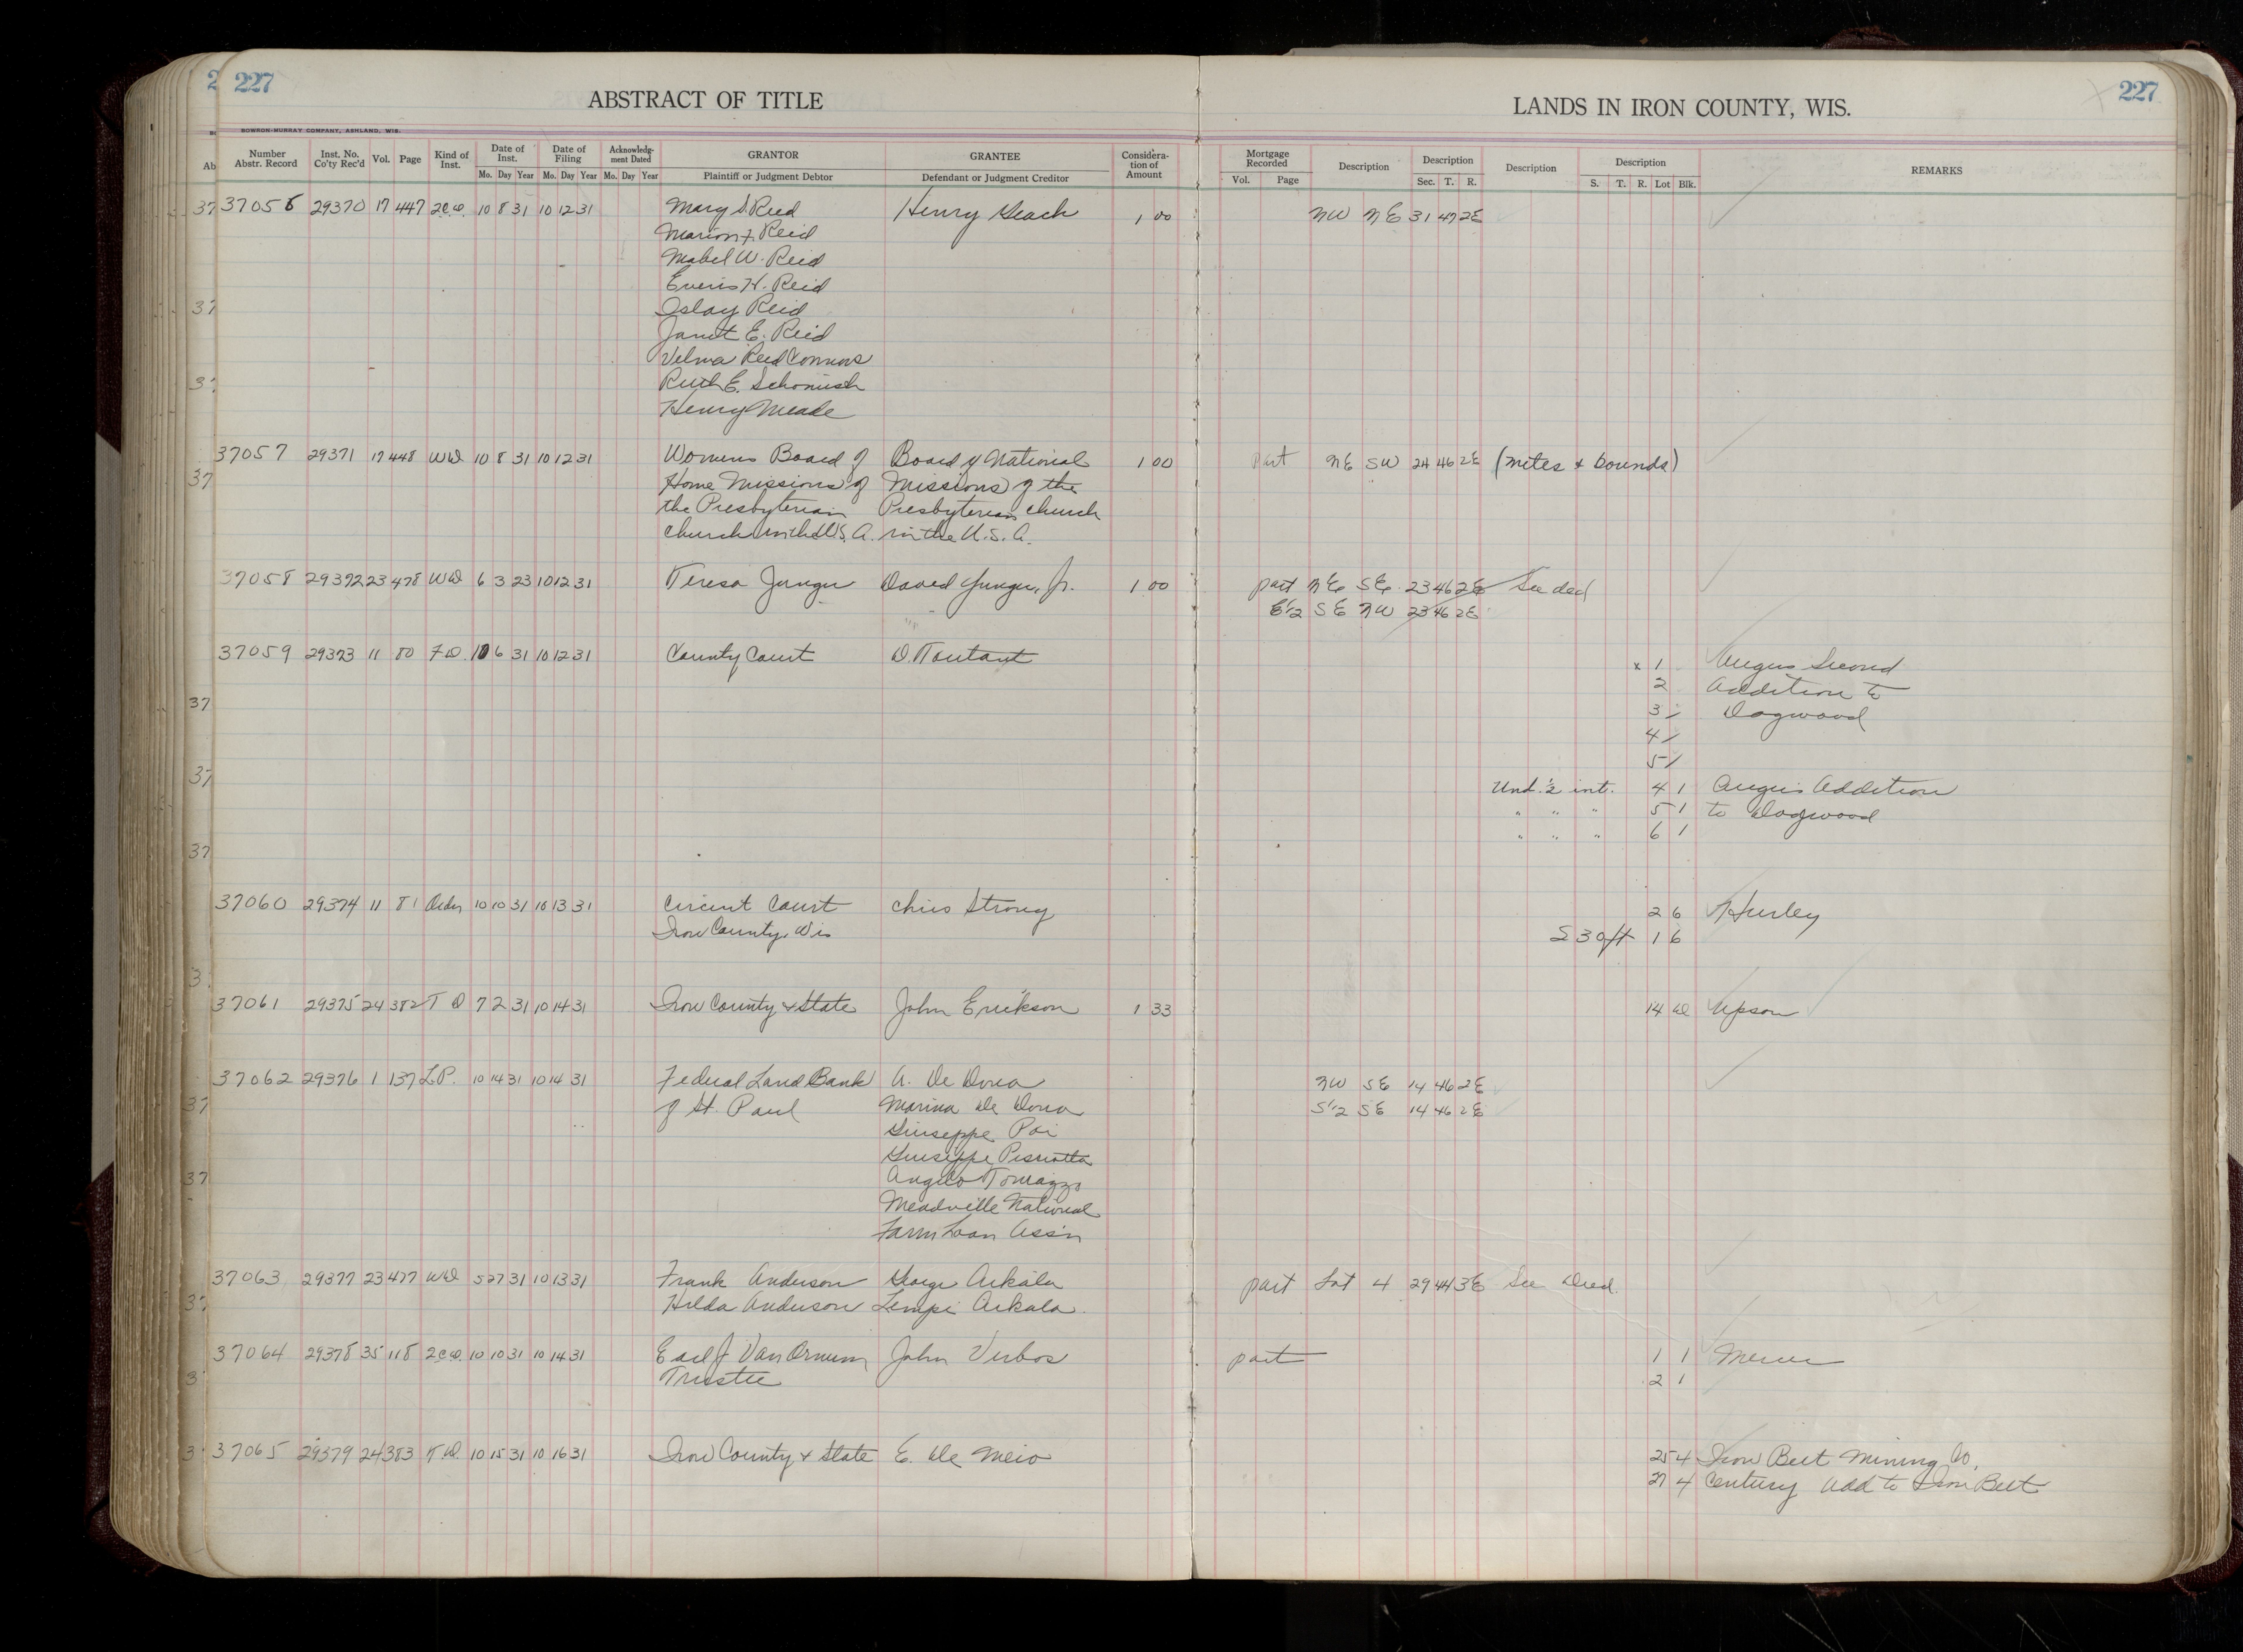 227
ABSTRACT OF TITLE
LANDS IN IRON COUNTY, WIS.
227
BOWRON-MURRAY COMPANY, ASHLAND, WIS.
Number Abstr. Record Inst. No. Co'ty Rec'd Vol. Page Kind of Inst. Date of Inst. Mo. Day Year Date of Filing Mo. Day Year Acknowledg-ment Dated Mo. Day Year GRANTOR Plaintiff or Judgment Debtor GRANTEE Defendant or Judgment Creditor Considera-tion of Amount Mortgage Recorded Vol. Page Description Description Sec. T. R. Description Description S. T. R. Lot Blk. REMARKS
37056 29370 17 447 2CD 10 8 31 10 12 31 Mary S. Reid Henry 1 00 NW NE 31 47 2E
Marion F. Reid
Mabel W. Reid
H. Reid
Islay Reid
Janet E. Reid
Velma Reid Connors
Ruth E.
Henry Meade
37057 29371 17 448 WD 10 8 31 10 12 31 Womens Board of Board of National 1 00 part NE SW 24 46 2E (metes & bounds)
Home Missions of Missions of the
the Presbyterian Presbyterian church
church in the U.S.A. in the U.S.A.
37058 29372 23 478 WD 6 3 23 10 12 31 Teresa Yunger David Yunger, Jr. 1 00 part NE SE 23 46 2E See deed
E½ SE NW 23 46 2E
37059 29373 11 80 FD 10 6 31 10 12 31 County Court D. Toutant x 1 Angus Second
2 Addition to
3 Dogwood
4
5
Und. ½ int. 4 1 Angus Addition
" " " 5 1 to Dogwood
" " " 6 1
37060 29374 11 81 Order 10 10 31 10 13 31 Circuit Court Chris Strong 2 6 Hurley
Iron County, Wis S 30 ft 1 6
37061 29375 24 382 T D 7 2 31 10 14 31 Iron County & State John Erickson 1 33 14 D Upson
37062 29376 1 137 L.P. 10 14 31 10 14 31 Federal Land Bank A. De Dona NW SE 14 46 2E
of St. Paul Marina De Dona S½ SE 14 46 2E
Giuseppe Poi
Giuseppe
Angelo Tomazzo
Meadville National
Farm Loan Ass'n
37063 29377 23 477 WD 5 27 31 10 13 31 Frank Anderson George Arkala part Lot 4 29 44 3E See Deed.
Hilda Anderson Lempi Arkala
37064 29378 35 118 2CD 10 10 31 10 14 31 Earl J Van Ornum John Verbos part 1 1 Mercer
Trustee 2 1
37065 29379 24 383 T.D. 10 15 31 10 16 31 Iron County & State E. De Meio 25 4 Iron Belt Mining Co.
27 4 Century Add to Iron Belt